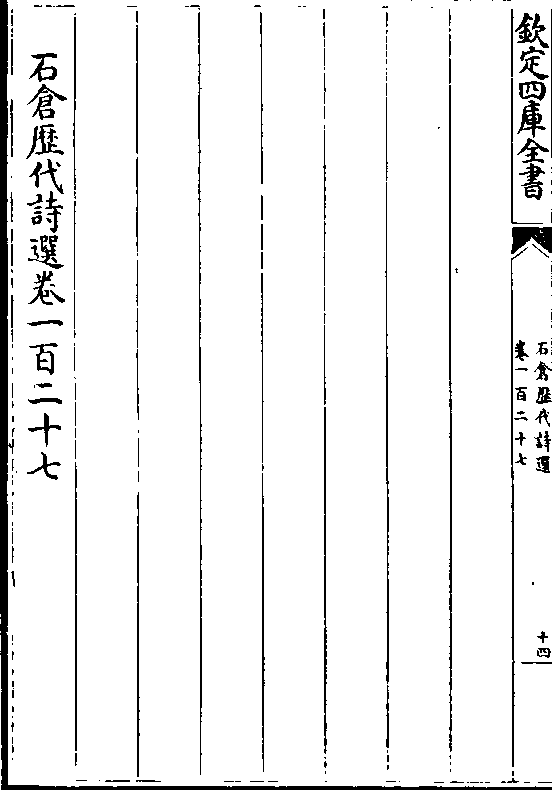 欽定四庫全書
石倉歴代詩選
卷一百二十七
十四
石倉歴代詩選卷一百二十七